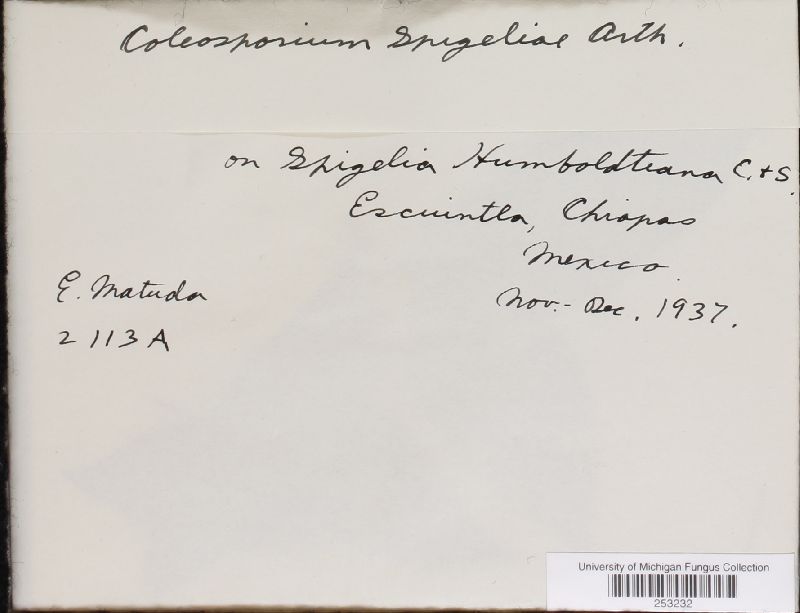 Coleosporium Spigeliae Arth.
on Spigelia Humboldtiana C. + S.
Escuintla, Chiapas
Mexico
E. Matuda
Nov. - Dec. 1937.
2113A
University of Michigan Fungus Collection
253232